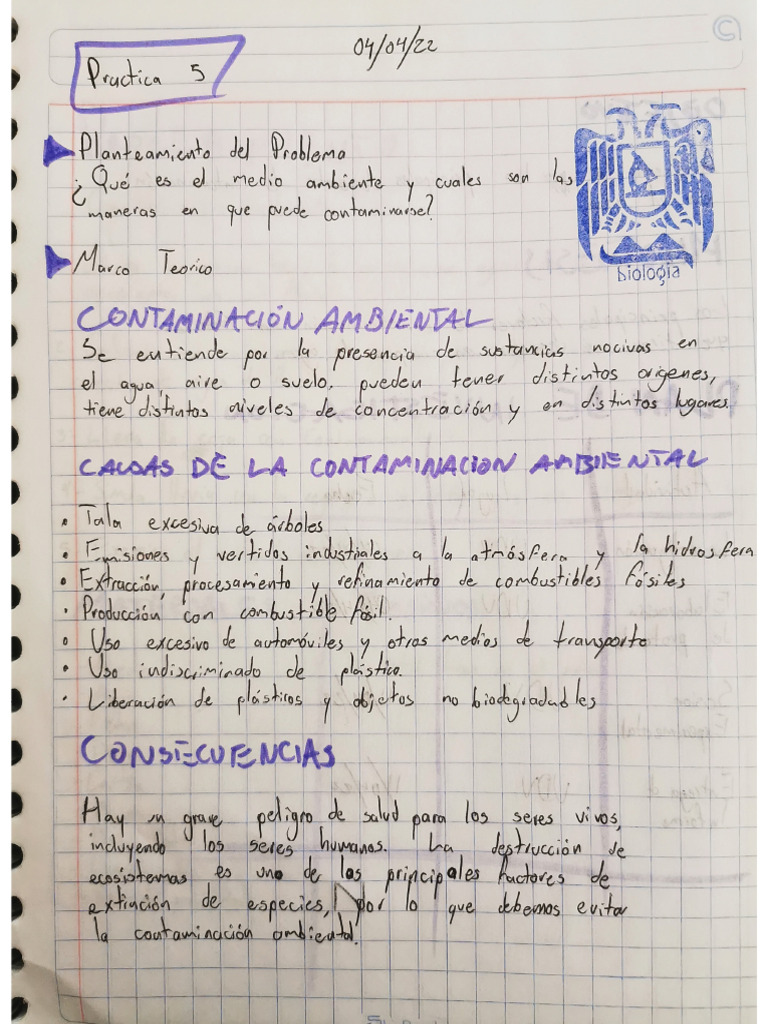 04/04/22
Practica 5
Planteamiento del Problema
¿Qué es el medio ambiente y cuales son las
maneras en que puede contaminarse?
biología
Marco Teorico
CONTAMINACIÓN AMBIENTAL
Se entiende por la presencia de sustancias nocivas en
el agua, aire o suelo, pueden tener distintos orígenes,
tiene distintos niveles de concentración y en distintos lugares.
CAUSAS DE LA CONTAMINACION AMBIENTAL
• Tala excesiva de árboles
• Emisiones y vertidos industriales a la atmósfera y la hidrosfera
• Extracción, procesamiento y refinamiento de combustibles fósiles
• Producción con combustible fósil.
• Uso excesivo de automóviles y otros medios de transporte
• Uso indiscriminado de plástico.
• Liberación de plásticos y objetos no biodegradables
CONSECUENCIAS
Hay un grave peligro de salud para los seres vivos,
incluyendo los seres humanos. La destrucción de
ecosistemas es uno de los principales factores de
extinción de especies, por lo que debemos evitar
la contaminación ambiental.